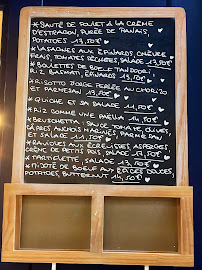 *SAUTÉ DE POULET À LA CRÈME
D'ESTRAGON, PURÉE DE PANAIS,
POTATOES 13,50€
*LASAGNES AUX ÉPINARDS, CHÈVRE
FRAIS, TOMATES SÉCHÉES, SALADE 13,50€
*BOULETTES DE BOEUF TANDOORI,
RIZ BASMATI, ÉPINARDS 13,50€
*RISOTTO ORGE PERLÉ AU CHORIZO
ET PARMESAN 13,50€
*QUICHE ET SA SALADE 11,50€
*RIZ COMME UNE PAËLLA 14,50€
*BRUSCHETTA: SAUCE TOMATE, OLIVES,
CÂPRES, ANCHOIS MARINÉS, PARMESAN
ET SALADE 11,50€
*RAVIOLES AUX ÉCREVISSES, ASPERGES,
CRÈME DE PETITS POIS, SALADE 14,50€
*TARTIFLETTE, SALADE 13,50€
*MIJOTÉ DE BOEUF AUX ÉPICES DOUCES,
POTATOES, BUTTERNUT 14,50€